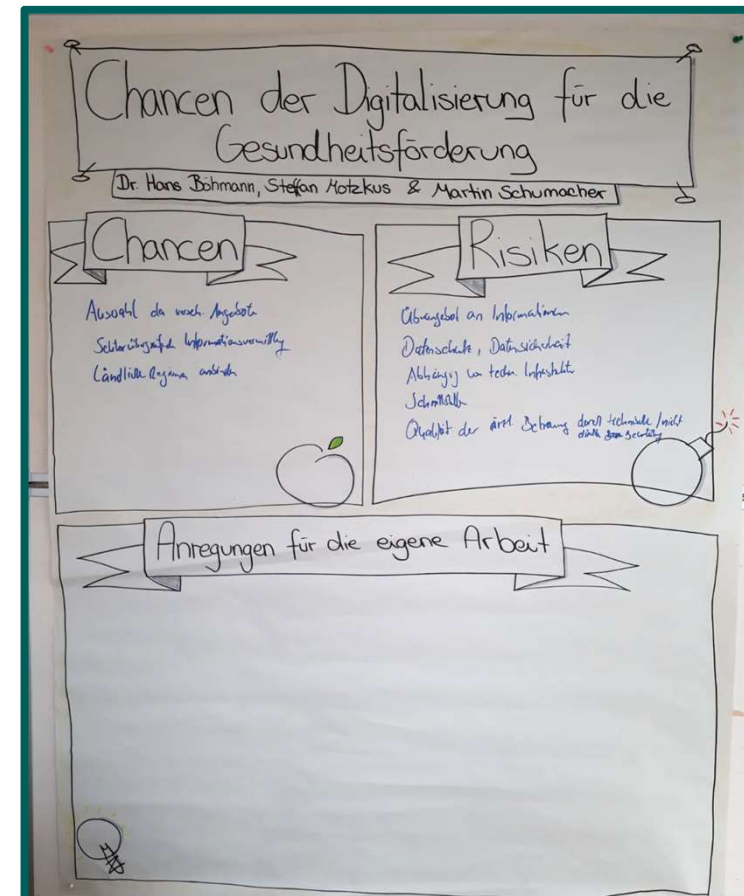 Chancen der Digitalisierung für die
Gesundheitsförderung
Dr. Hans Böhmann, Steffan Motzkus & Martin Schumacher
Chancen
Auswahl der versch. Angebote
Informationsvermittlg
Ländliche Regionen anbinden
Risiken
Überangebot an Informationen
Datenschutz, Datensicherheit
Abhängig von techn.
Qualität der ärztl. durch technische / nicht
Anregungen für die eigene Arbeit